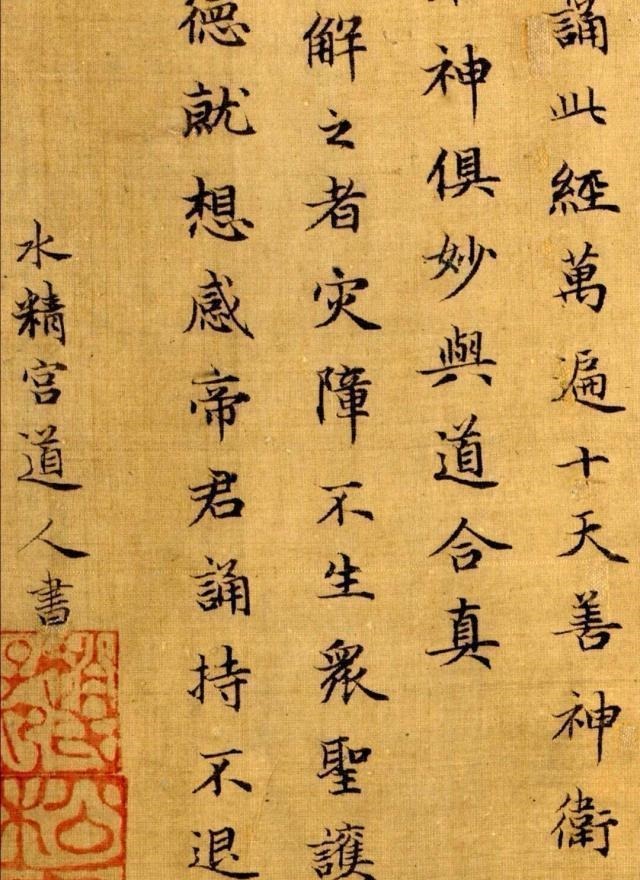 誦此經萬遍十天善神衛
神俱妙與道合真
解之者灾障不生眾聖護
德就想感帝君誦持不退
水精宮道人書
趙氏子昂
松